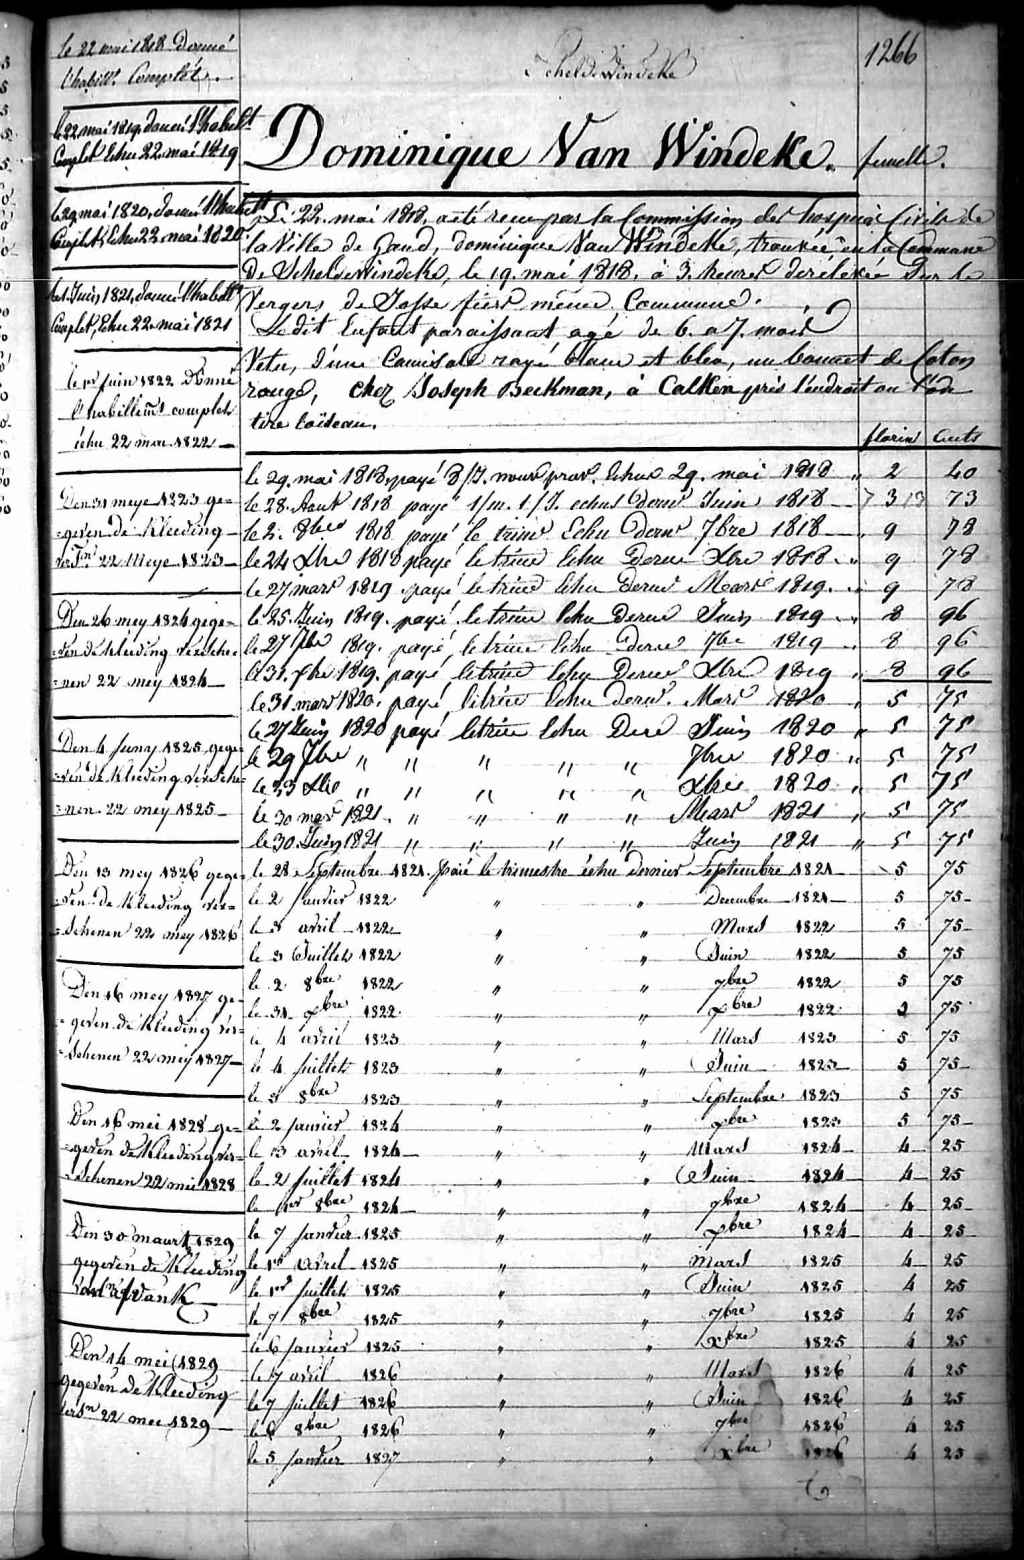 le 22 mai 1818 Donné
l'habill.t Complet.
le 22 mai 1819, donné l'habill.t
Complet Echu 22 mai 1819
le 29 mai 1820, donné l'habill.t
Complet, Echu 22 mai 1820
le 1 Juin 1821, donné l'habill.t
Complet, Echu 22 mai 1821
le 1er Juin 1822 Donné
l'habillemt complet
échu 22 mai 1822
Den 31 meye 1823 ge=
=geven de Kleeding
22 Meye 1823
Den 26 mey 1824 gege=
=ven de kleeding versche=
=nen 22 mey 1824
Den 4 Juny 1825 gege=
=ven de kleeding versche=
=nen 22 mey 1825
Den 13 mey 1826 gege=
=ven de kleeding ver=
=schenen 22 mey 1826
Den 16 mey 1827 ge=
=geven de kleeding ver=
=schenen 22 mey 1827
Den 16 mei 1828 ge=
=geven de Kleeding ver=
=schenen 22 mei 1828
Den 30 maart 1829
gegeven de Kleeding
Den 14 mei 1829
gegeven de Kleeding
versn 22 mei 1829
Scheldewindeke
1266
Dominique Van Windeke.
femelle.
Le 22. mai 1818, a été reçu par la Commission des hospices Civils de
la Ville de Gand, dominique Van Windeke, trouvée en la Commune
De Scheldewindeke, le 19. mai 1818. à 3. heures de rélevée Sur le
Vergers de Josse même Commune.
Le dit Enfant paraissant agé de 6. a 7. mois
Vetu, d'une Camisole rayé blanc et bleu, un bonnet de Coton
rouge, chez Joseph Beekman, à Calken près l'endroit ou l'on
tire l'oiseau.
florin Cents
le 29. mai 1818. payé 8/J. nour prov. Echus 29. mai 1818 " 2 40
le 28. Aout 1818 payé 1/m. 1/J. echus dernr Juin 1818 73 73
le 2. 8bre 1818 payé le trime Echu dernr 7bre 1818 " 9 78
le 24 Xbre 1818 payé le trime Echu Dernr Xbre 1818 " 9 78
le 27 mars 1819. payé le trime Echu Dernr Mars 1819. " 9 78
le 25. Juin 1819. payé le trime Echu Dernr Juin 1819 " 8 96
le 27 7bre 1819. payé, le trime Echu Dernr 7bre 1819 " 8 96
le 31. Xbre 1819. payé le trime Echu Dernr Xbre 1819 " 8 96
le 31 mars 1820. payé, le trime Echu dernr. Mars 1820 " 5 75
le 27 Juin 1820 payé le trime Echu Dernr Juin 1820 " 5 75
le 29 7bre " " " " " 7bre 1820 " 5 75
le 23 Xbre " " " " " Xbre 1820 " 5 75
le 30 mars 1821. " " " " Mars 1821 " 5 75
le 30 Juin 1821 " " " " Juin 1821 " 5 75
le 28 Septembre 1821. Paié le trimestre échu dernier Septembre 1821 5 75
le 2 Janvier 1822 " " Decembre 1821 5 75
le 3 avril 1822 " " Mars 1822 5 75
le 3 Juillet 1822 " " Juin 1822 5 75
le 2 8bre 1822 " " 7bre 1822 5 75
le 31 Xbre 1822 " " Xbre 1822 5 75
le 4 avril 1823 " " Mars 1823 5 75
le 4 juillet 1823 " " Juin 1823 5 75
le 3 8bre 1823 " " Septembre 1823 5 75
le 2 janvier 1824 " " Xbre 1823 5 75
le 13 avril 1824 " " Mars 1824 4 25
le 2 juillet 1824 " " Juin 1824 4 25
le 1er 8bre 1824 " " 7bre 1824 4 25
le 7 Janvier 1825 " " Xbre 1824 4 25
le 1er avril 1825 " " Mars 1825 4 25
le 1er juillet 1825 " " Juin 1825 4 25
le 7 8bre 1825 " " 7bre 1825 4 25
le 6 Janvier 1825 " " Xbre 1825 4 25
le 7 avril 1826 " " Mars 1826 4 25
le 7 juillet 1826 " " Juin 1826 4 25
le 6 8bre 1826 " " 7bre 1826 4 25
le 5 janvier 1827 " " Xbre 1826 4 25